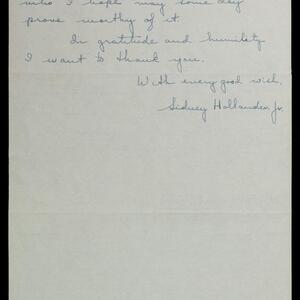 who I hope may some day
prove worthy of it.
In gratitude and humility
I want to thank you.
With every good wish,
Sidney Hollander, Jr.